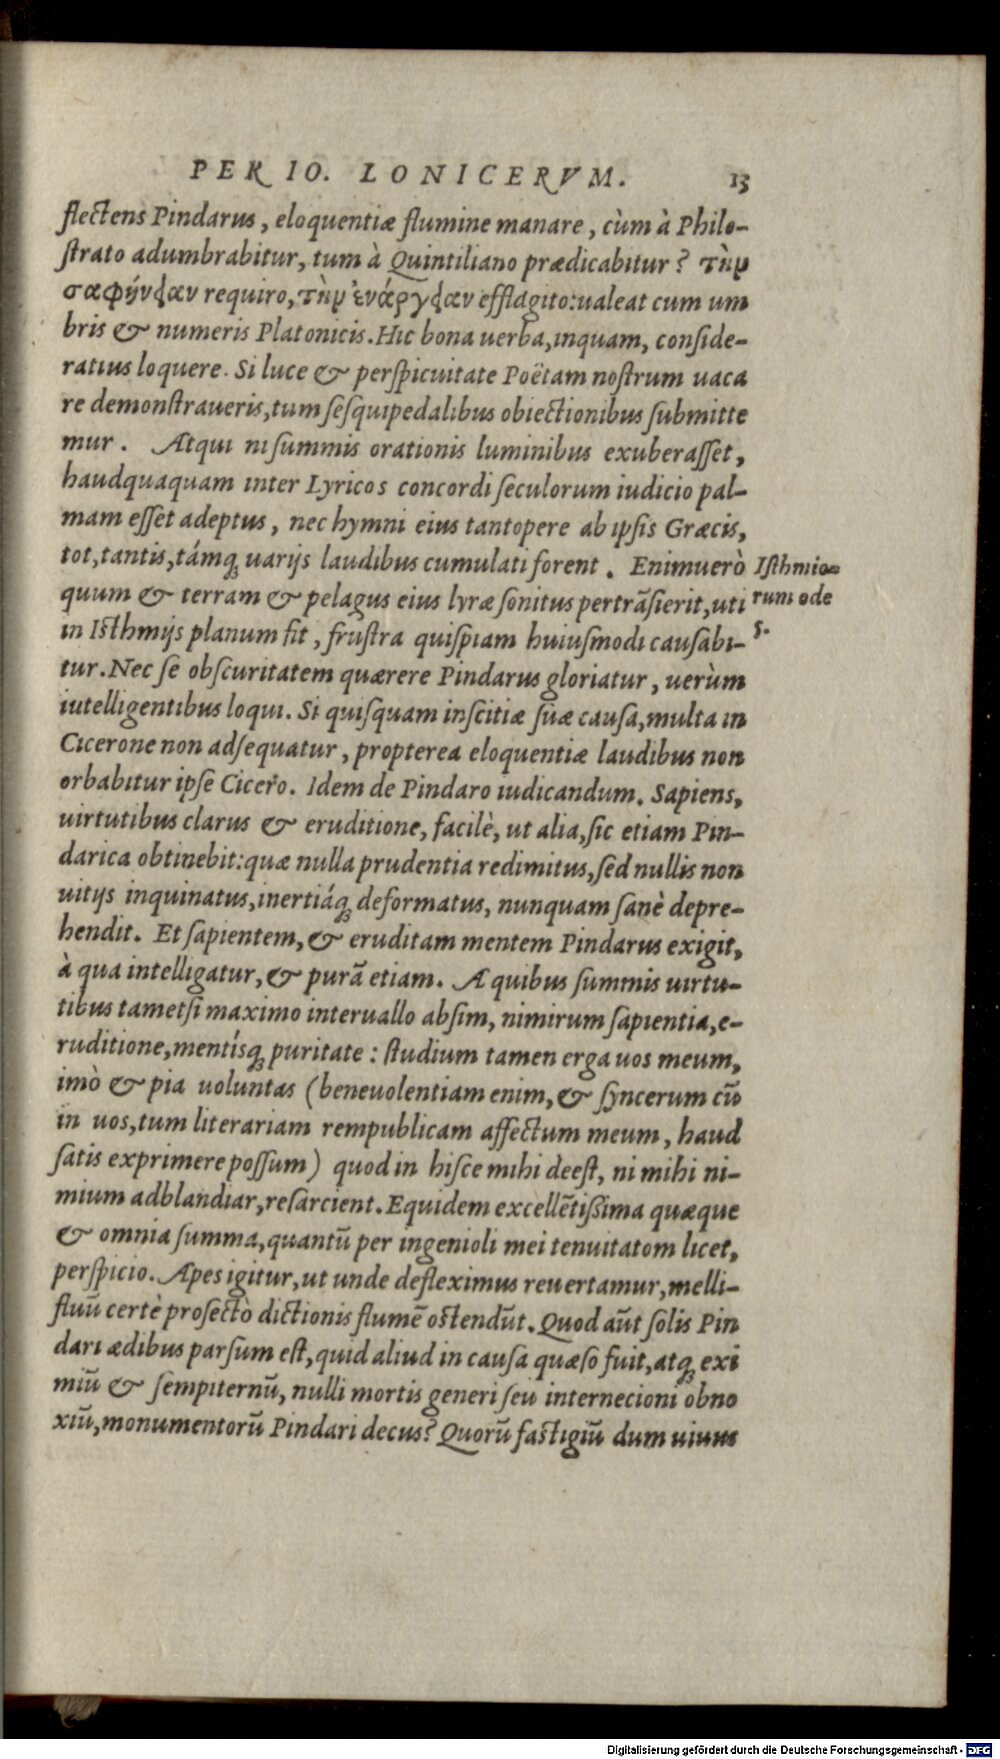 PER IO. LONICERVM. 13
flectens Pindarus, eloquentiæ flumine manare, cùm à Philo-
ſtrato adumbrabitur, tum à Quintiliano prædicabitur? τὴν
σαφήνειαν requiro, τὴν ἐνάργειαν efflagito: ualeat cum um
bris & numeris Platonicis. Hic bona uerba, inquam, conſide-
ratius loquere. Si luce & perſpicuitate Poëtam noſtrum uaca
re demonſtraueris, tum ſeſquipedalibus obiectionibus ſubmitte
mur. Atqui ni ſummis orationis luminibus exuberaſſet,
haudquaquam inter Lyricos concordi ſeculorum iudicio pal-
mam eſſet adeptus, nec hymni eius tantopere ab ipſis Græcis,
tot, tantis, támq; uarijs laudibus cumulati forent. Enimuerò
Iſthmio-
quum & terram & pelagus eius lyræ ſonitus pertrāſierit, uti
rum ode
in Iſthmijs planum fit, fruſtra quiſpiam huiuſmodi cauſabi-
5.
tur. Nec ſe obſcuritatem quærere Pindarus gloriatur, uerùm
iutelligentibus loqui. Si quiſquam inſcitiæ ſuæ cauſa, multa in
Cicerone non adſequatur, propterea eloquentiæ laudibus non
orbabitur ipſe Cicero. Idem de Pindaro iudicandum. Sapiens,
uirtutibus clarus & eruditione, facilè, ut alia, ſic etiam Pin-
darica obtinebit: quæ nulla prudentia redimitus, ſed nullis non
uitijs inquinatus, inertiáq; deformatus, nunquam ſanè depre-
hendit. Et ſapientem, & eruditam mentem Pindarus exigit,
à qua intelligatur, & purā etiam. A quibus ſummis uirtu-
tibus tametſi maximo interuallo abſim, nimirum ſapientia, e-
ruditione, mentísq; puritate: ſtudium tamen erga uos meum,
imò & pia uoluntas (beneuolentiam enim, & ſyncerum cū
in uos, tum literariam rempublicam affectum meum, haud
ſatis exprimere poſſum) quod in hiſce mihi deeſt, ni mihi ni-
mium adblandiar, reſarcient. Equidem excellētiſſima quæque
& omnia ſumma, quantū per ingenioli mei tenuitatom licet,
perſpicio. Apes igitur, ut unde defleximus reuertamur, melli-
fluū certè profectò dictionis flumē oſtendūt. Quod aūt ſolis Pin
dari ædibus parſum eſt, quid aliud in cauſa quæſo fuit, atq; exi
miū & ſempiternū, nulli mortis generi ſeu internecioni obno
xiū, monumentorū Pindari decus? Quorū faſtigiū dum uiuus
Digitalisierung gefördert durch die Deutsche Forschungsgemeinschaft - DFG